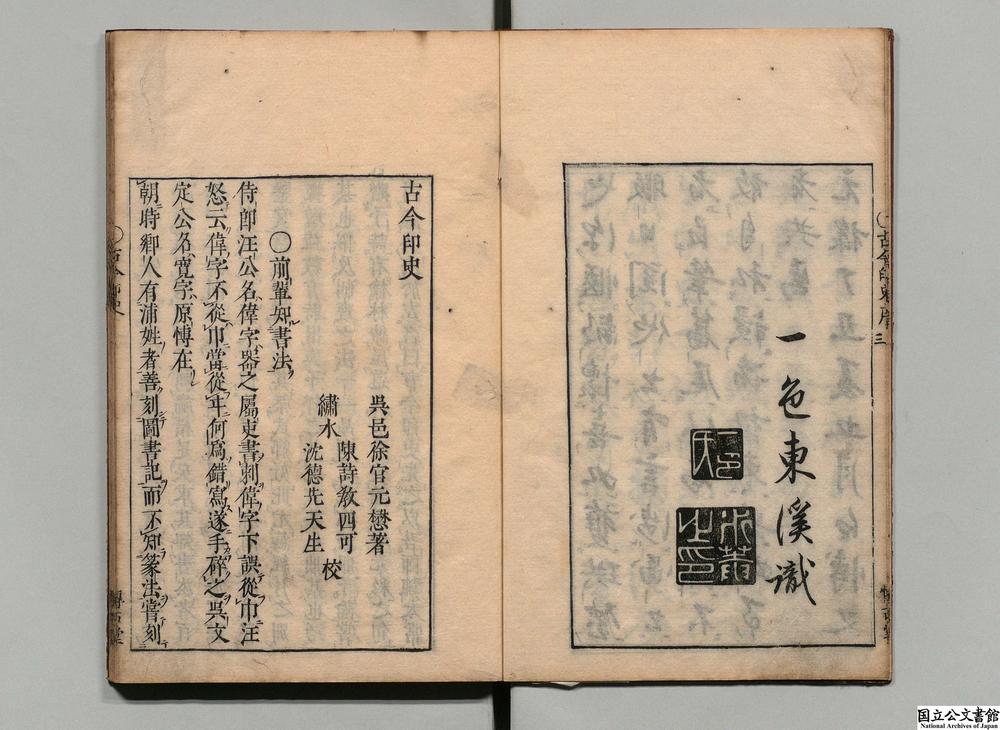 古今印史序 三
一色東溪識
古今印史
吳邑徐官元懋著
繡水
陳詩教四可
沈德先天生
校
〇前輩知書法
侍郎汪公名偉字器之屬吏書刺偉字下誤從巾汪
怒云偉字不從巾當從㐄何爲錯寫遂手碎之吳文
定公名寬字原博在
朝時鄉人有浦姓者善刻圖書記而不知篆法嘗刻
〇古今印史
博古堂
国立公文書館
National Archives of Japan